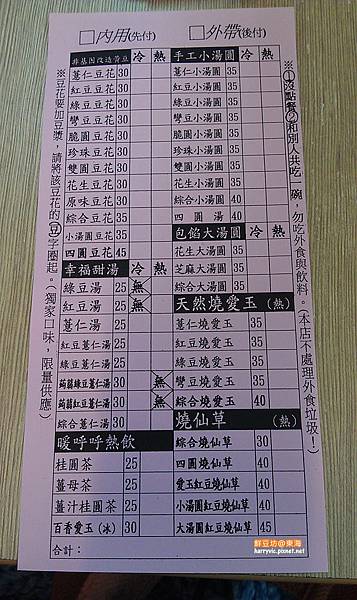 □內用(先付) □外帶(後付)
非基因改造黃豆 冷 熱
薏仁豆花 30
紅豆豆花 30
綠豆豆花 30
彎豆豆花 30
脆圓豆花 30
珍珠豆花 30
雙圓豆花 30
花生豆花 30
原味豆花 30
綜合豆花 35
小湯圓豆花 35
四圓豆花 45
幸福甜湯 冷 熱
綠豆湯 25 無
紅豆湯 25 無
薏仁湯 25
紅豆薏仁湯 25
綠豆薏仁湯 25
蒟蒻綠豆薏仁湯 30 無
蒟蒻紅豆薏仁湯 30 無
綜合薏仁湯 30
暖呼呼熱飲
桂圓茶 25
薑母茶 25
薑汁桂圓茶 25
百香愛玉(冰) 30
合計:
手工小湯圓 冷 熱
薏仁小湯圓 35
紅豆小湯圓 35
綠豆小湯圓 35
彎豆小湯圓 35
脆圓小湯圓 35
珍珠小湯圓 35
雙圓小湯圓 35
花生小湯圓 35
綜合小湯圓 40
四圓湯 40
包餡大湯圓 冷 熱
花生大湯圓 35
芝麻大湯圓 35
綜合大湯圓 35
天然燒愛玉(熱)
薏仁燒愛玉 35
紅豆燒愛玉 35
綠豆燒愛玉 35
彎豆燒愛玉 35
綜合燒愛玉 40
燒仙草 (熱)
綜合燒仙草 30
四圓燒仙草 40
愛玉紅豆燒仙草 40
小湯圓紅豆燒仙草 40
大湯圓紅豆燒仙草 45
※豆花要加豆漿,請將該豆花的豆字圈起。(獨家口味,限量供應)
※①沒點餐②和別人共吃一碗,勿吃外食與飲料。(本店不處理外食垃圾!)
鮮豆坊@東海
harryvic.pixnet.net